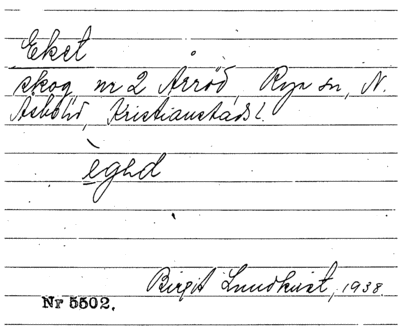 Eket
skog, nr 2 Årröd, Rya sn, N.
Åsbo hd, Kristianstads l.
èghd
Birgit Lundkvist, 1938.
Nr 5502.